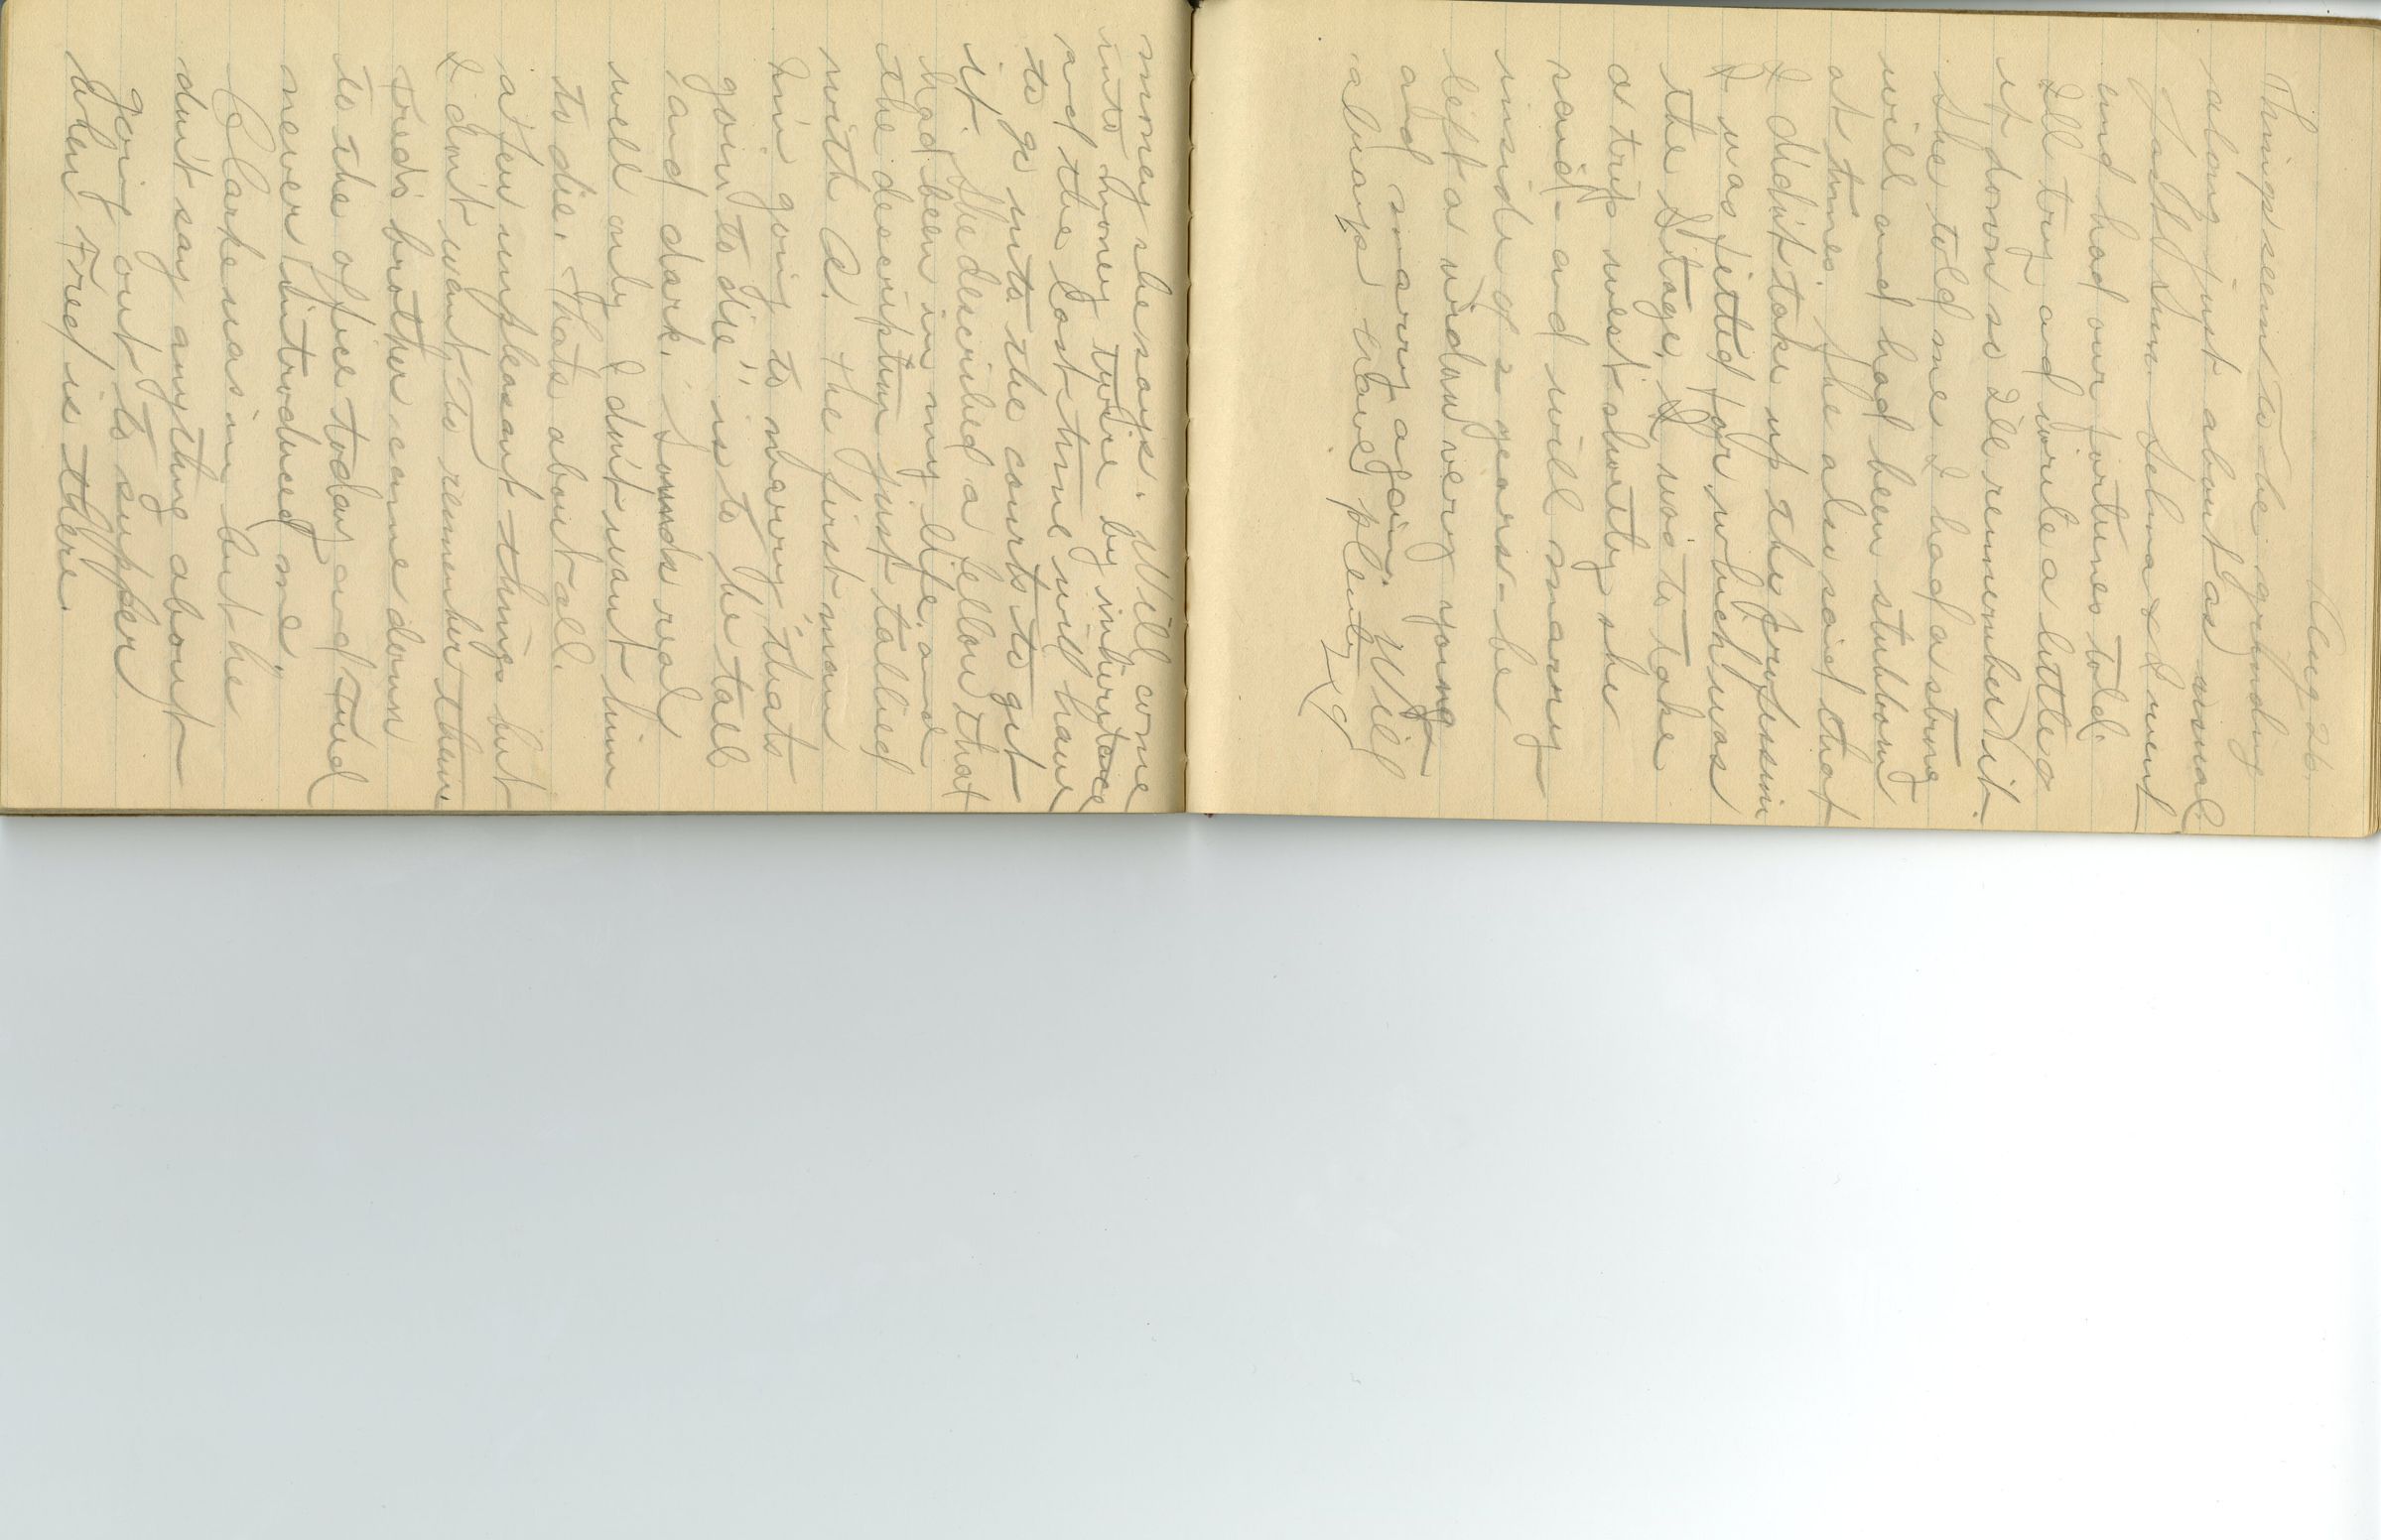 Aug 26.
Things seem to be grinding
along just about as usual.
Last Sun. Selma & I went
and had our fortunes told.
I'll try and write a little o
it down so I'll remember it.
She told me I had a strong
will and had been stubborn
at times. She also said that
I didn't take up the profession
I was fitted for which was
the stage. I was to take
a trip west shortly she
said - and will marry
inside of 2 years - be
left a widow very young
and marry again. Will
always have plenty of
money she says. Will come
into money twice by inheritance
and the last time will have
to go into the courts to get
it. She described a fellow that
had been in my life, and
the description just tallied
with A. The first man
I'm going to marry, "thats
goin to die" is to be tall
and dark. Sounds real
well only I don't want him
to die. Thats about all.
A few unpleasant things but
I don't want to remember them
Fred's brother came down
to the office today and Fred
never "introduced me."
Clarke was in but he
didn't say anything about
going out to supper
when Fred is there.